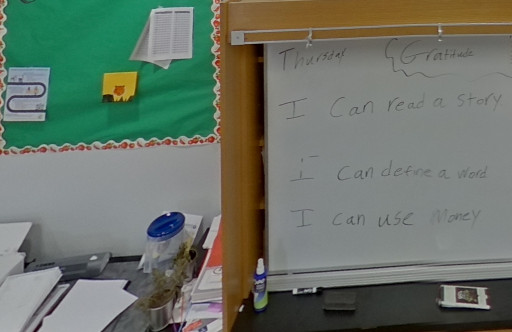 Thursday Gratitude
I Can read a Story
I Can define a word
I can use Money